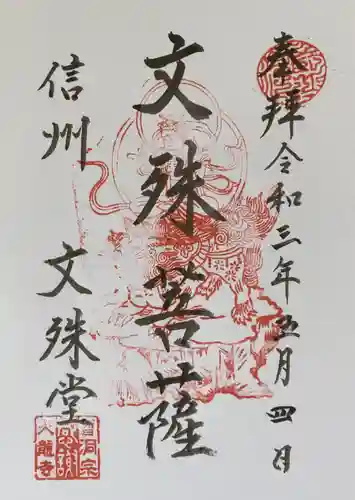 奉拝
令和三年五月四日
文殊菩薩
信州
文殊堂
曹洞宗